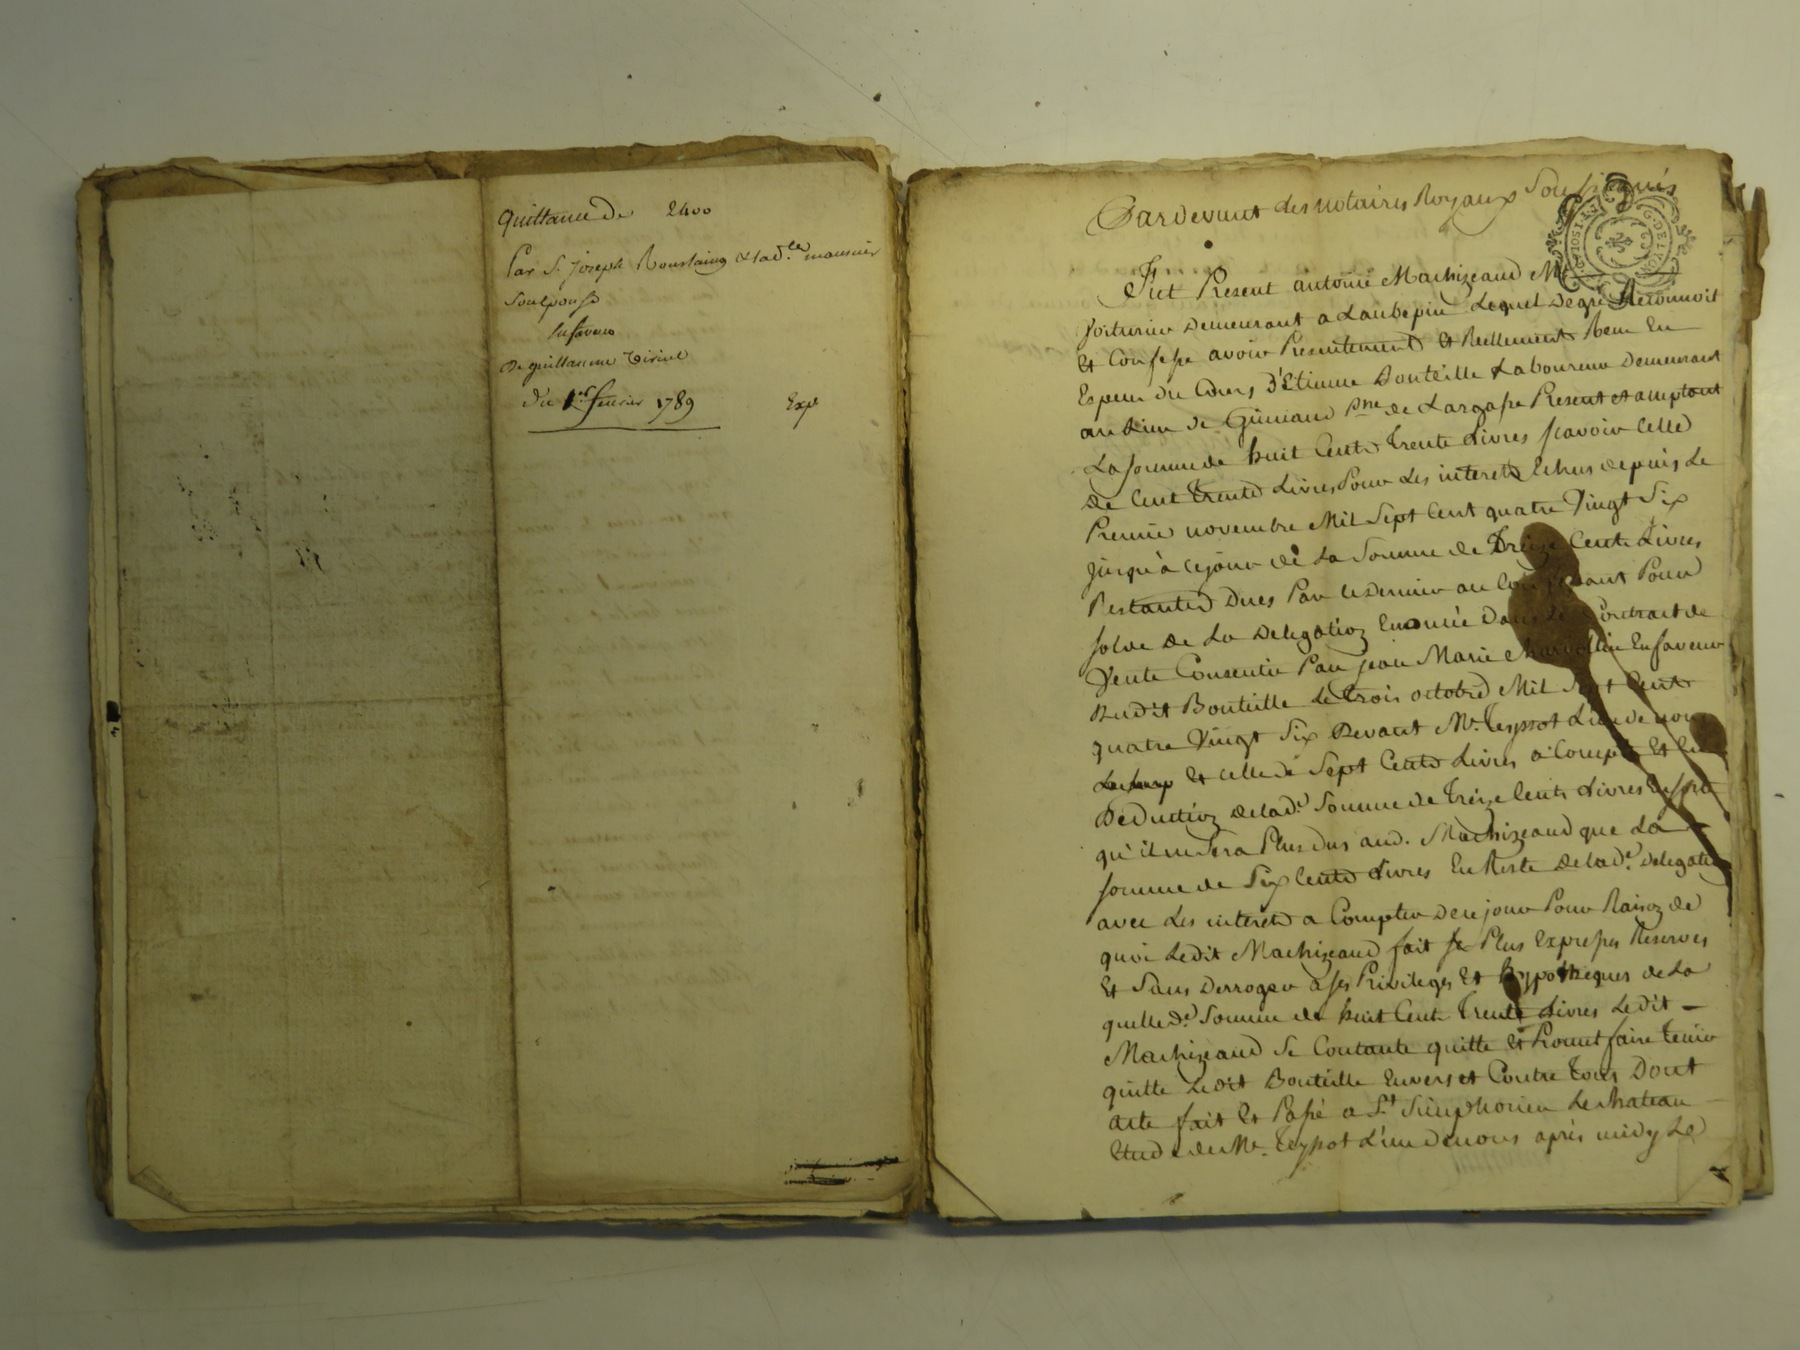 quittance de 2400
Par S. Joseph Roustaing & lad.te mousnier
Son epouse
En faveur
De guillaume
du 1er fevrier 1789 Expé
Pardevant les notaires Royaux Soussignés
G. DE LYON
Fut Present antoine Machizeaud Md
Voiturier Demeurant a Laubepin Lequel De gré Reconnoit
Et Confesse avoir Presentement Et Reellement Receu En
Especes du Cours D'Etienne Bouteille Laboureur Demeurant
au Lieu de Guinand Psse de Largasse Present et acceptant
La somme de huit Cent Trente Livres sçavoir Celle
de Cent Trente Livres Pour Les interets Echus depuis Le
Premier novembre Mil Sept Cent quatre Vingt Six
jusqu'à ce jour de La Somme de Treize Cents Livres
Restantes Dues Par ce dernier au Confessant Pour
solde de La Delegation Enoncée Dans Le Contract de
Vente Consentie Par jean Marie En faveur
Dudit Bouteille Le trois octobre Mil Sept Cent
quatre Vingt Six Devant Me. Teyssot L'un de nous
Et celle de Sept Cents Livres a Compte Et En
Deduction de lad.e Somme de Treize Cents Livres Ensorte
qu'il ne Sera Plus Dus aud. Machizeaud que La
somme de Six Cents Livres En Reste de lad.e Delegation
avec Les interets a Compter de ce jour Pour Raison de
quoi Ledit Machizeaud fait Se Plus Expresses Reserves
Et Sans Derroger a ses Privileges Et hyppotheques de La
quelle d.e Somme de huit Cent Trente Livres Ledit
Machizeaud Se Contante quitte Et Promet faire tenir
quitte Ledit Bouteille Envers et Contre tous Dont
acte fait Et Passé a St Simphorien Le Chateau
Etude de Me. Teyssot L'un de nous après midy Le